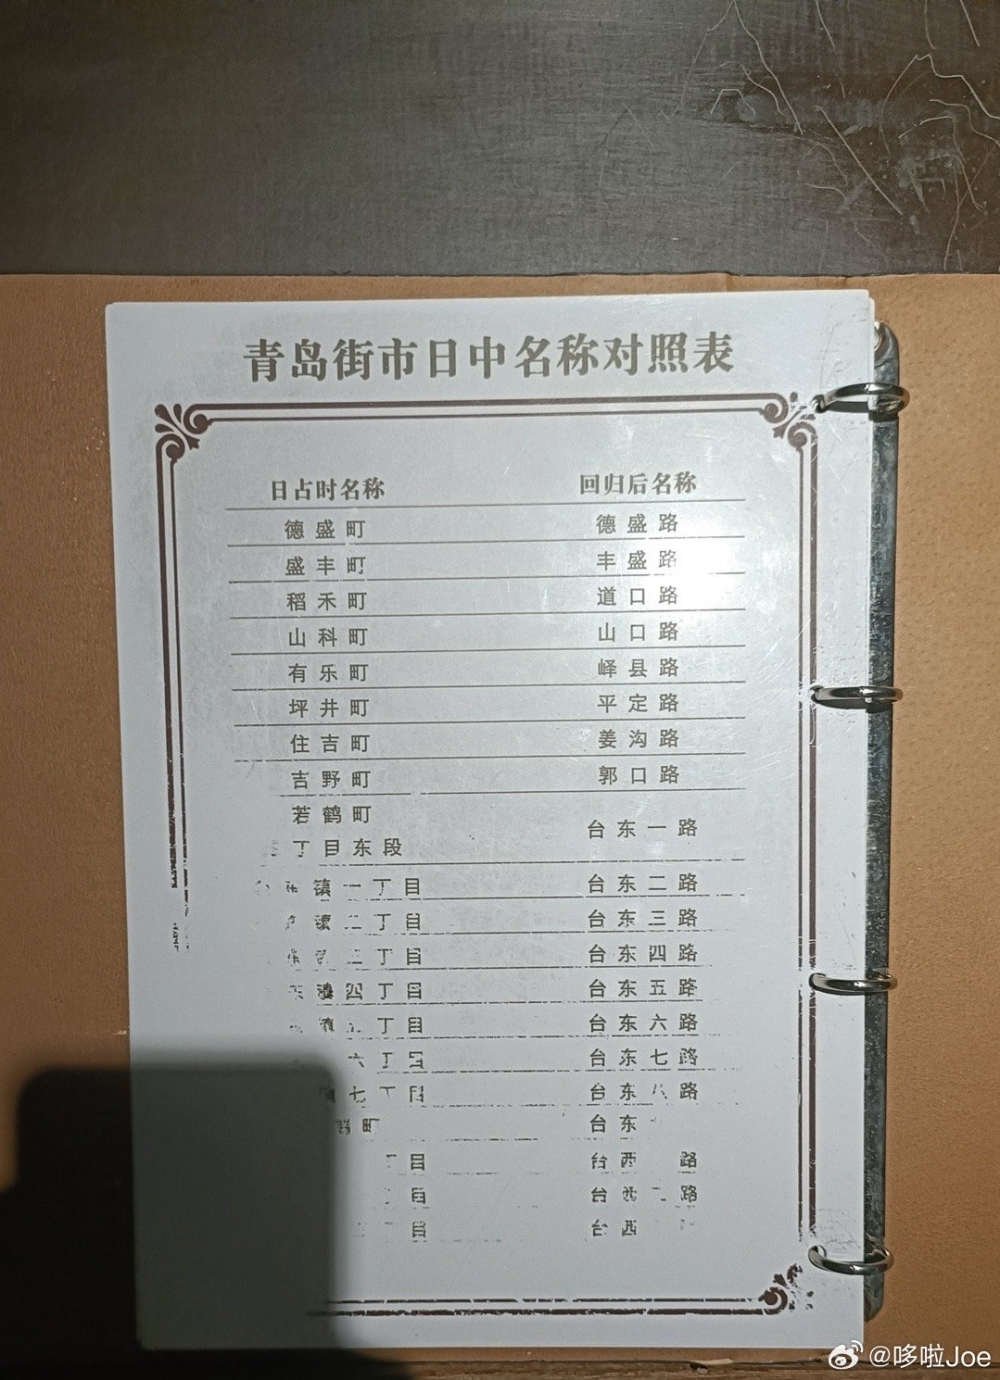 青岛街市日中名称对照表
日占时名称 回归后名称
德盛町 德盛路
盛丰町 丰盛路
稻禾町 道口路
山科町 山口路
有乐町 峄县路
坪井町 平定路
住吉町 姜沟路
吉野町 郭口路
若鹤町
台东一路
丁目东段
东镇一丁目 台东二路
镇二丁目 台东三路
丁目 台东四路
东镇四丁目 台东五路
镇 丁目 台东六路
六丁目 台东七路
七丁目 台东八路
町 台东
丁目 台西 路
丁目 台西二路
目 台西
@哆啦Joe